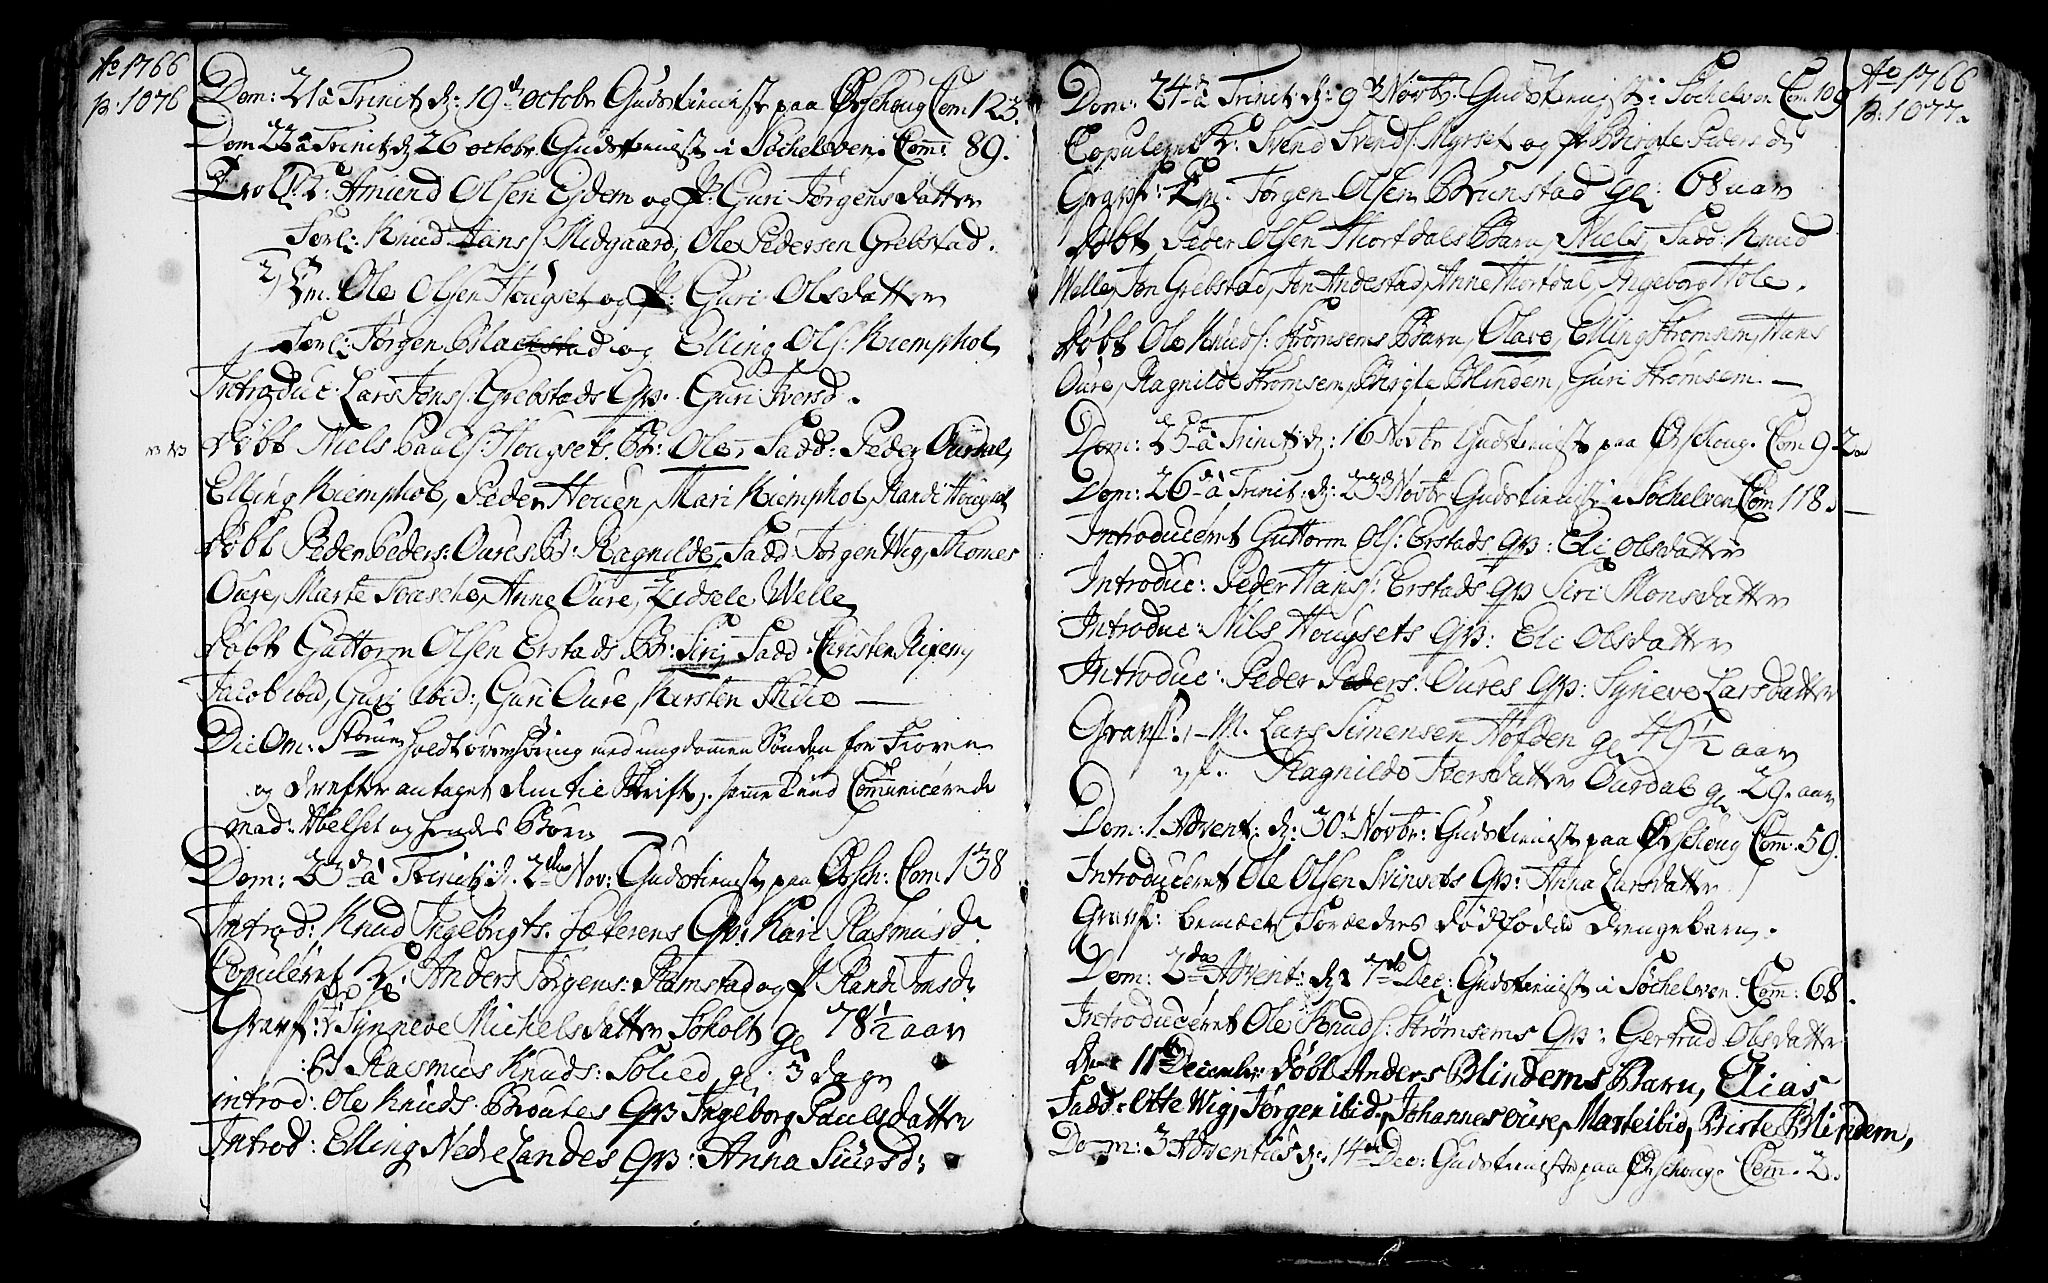 Ao 1766
p: 1076
Dom: 21 à Trinit. d: 19de octobr Gudstienist paa Ørschoug Com: 123.
Dom 22 à Trinit d 26 octobr. Gudstienist i Søchelven. Com: 89.
Trol. K: Amund Olsen Eidem og P: Guri Jørgensdatter
Forl: Knud Hans: Midgaard, Ole Pedersen Grebstad.
2) Em. Ole Olsen Hougset og P: Guri Olsdatter
Forl: Jørgen og Elling Ols: Kiemphol
Introduc: Lars Jons: Grebstads Qv: Guri Iversd.
Døbt Niels Paals: Hougsets B: Ole, Fadd: Peder Ourdal,
Elling Kiemphol, Peder Houen, Mari Kiemphol, Randi Hougset
Døbt Peder Peders: Oures B: Ragnilde, Fadd Jørgen Wig, Thomes
Oure, Marte Anne Oure, Zidsele Welle
Døbt Guttorm Olsen Erstads B: Siri, Fadd: Christen
Jacob ibid, Guri ibid:, Guri Oure, Kirsten
Die Om: holdt overhøring med ungdommen Sønden for Fioren
og derefter antaget dem til Skrift. samme tiid Communicerede
Mad: Abelset og hendes Børn
Dom: 23de à Trinit. d. 2den Nov: Gudstienist paa Ørsch: Com 138
Introd: Knud Ingebrigts. Sæterens Qv: Kari Rasmusd:
Copuleret K: Anders Jørgens: Ramstad og P Randi Jonsd:
Grafs: Synneve Michelsdatter Søholt gl 78½ aar
B: Rasmus Knuds: Solied gl: 3 dage
introd: Ole Knuds Broutes Qv Ingeborg Paulsdatter
Introd: Elling Nedre Landes Qv: Anna Siursd:
Ao 1766
p: 1077.
Dom: 24 à Trinit. d: 9de Novbr: Gudstienist i Søchelven Com 109
Copuleret K: Svend Svends: Myrset og P Birgte Peders d:
Grafs: Em. Jørgen Olsen Brunstad gl: 68 aar
Døbt Peder Olsen Hortdals Barn, Niels, Fadd: Knud
Welle, Jon Grebstad, Jon Andestad, Anne Hortdal, Ingeborg Hole.
Døbt Ole Knuds: Strømsems Barn, Olave, Elling Strømsem, Hans
Oure, Ragnilde Strømsem, Birgte Blindem, Guri Strømsem. —
Dom: 25 à Trinit d: 16 Novbr Gudstienist paa Ørschoug. Com 92
Dom: 26 à Trinit. d: 23 Novbr Gudstienist i Søchelven Com 118. —
Introduceret Guttorm Ols: Erstads Qv: Eli Olsdatter
Introduc: Peder Hans: Erstads Qv Siri Monsdatter
Introduc: Nils Hougsets Qv: Eli Olsdatter
Introduc: Peder Peders: Oures Qv: Syneve Larsdatter
Grafs: 1, M. Lars Simensen Høfden gl 49½ aar
2, F. Ragnilde Iversdatter Ourdal gl 29. aar
Dom: 1. Advent: d: 30 Novbr: Gudstienist paa Ørschoug Com: 59.
Introduceret Ole Olsen Svinsets Qv: Anna Larsdatter
Grafs: dødfødde drengebarn.
Dom: 2den Advent: d 7de Dec: Gudstienist i Søchelven. Com: 68.
Introduceret Ole Knuds: Strømsems Qv: Gertrud Olsdatter
Den 11te December døbt Anders Blindems Barn, Elias
Fadd: Otte Wig, Jørgen ibid, Johannes oure, Marte ibid, Birte Blindem,
Dom: 3 Adventus d: 14de Dec: Gudstieniste paa Ørschoug. Com. 2.